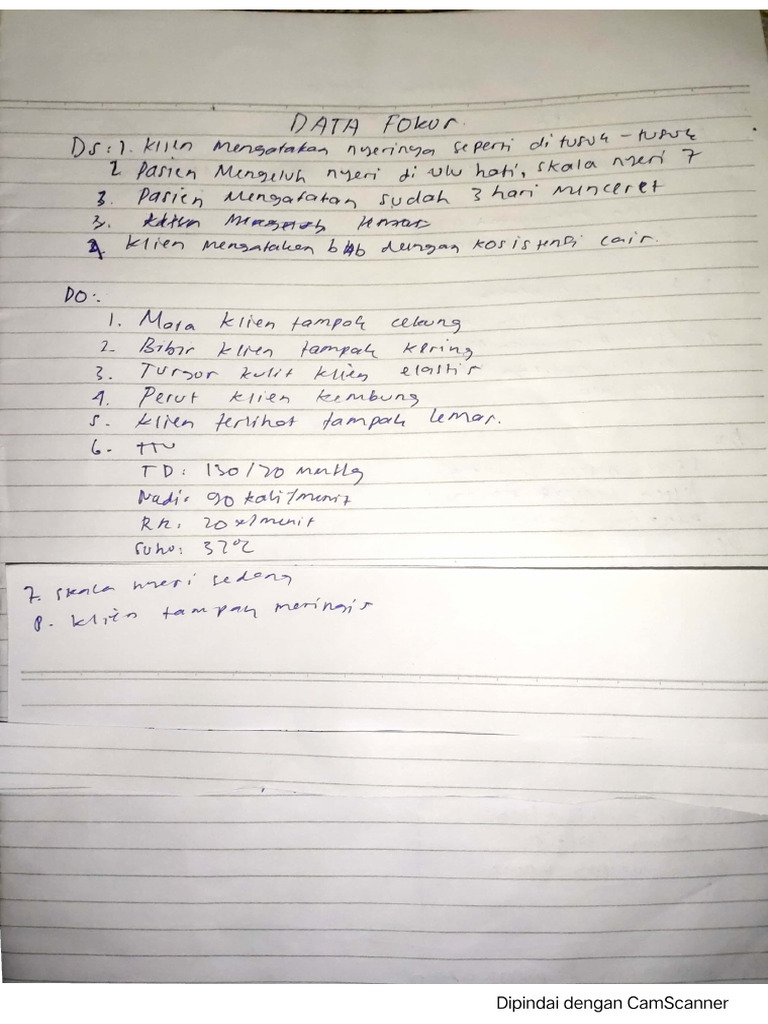 DATA FOKUS.
DS: 1. Klien mengatakan nyerinya seperti ditusuk-tusuk
2 Pasien Mengeluh nyeri di ulu hati, skala nyeri 7
3. Pasien Mengatakan sudah 3 hari menceret
3.
4. Klien mengatakan bab dengan kosistensi cair.
DO:.
1. Mata klien tampak cekung
2. Bibir klien tampak kering
3. Turgor kulit klien elastis
4. Perut klien kembung
5. Klien terlihat tampak lemas.
6. TTV
TD: 130/70 mmHg
Nadi: 90 kali/menit
RR: 20x/menit
Suhu: 37°C
7. Skala nyeri sedang
8. Klien tampak meringis
Dipindai dengan CamScanner